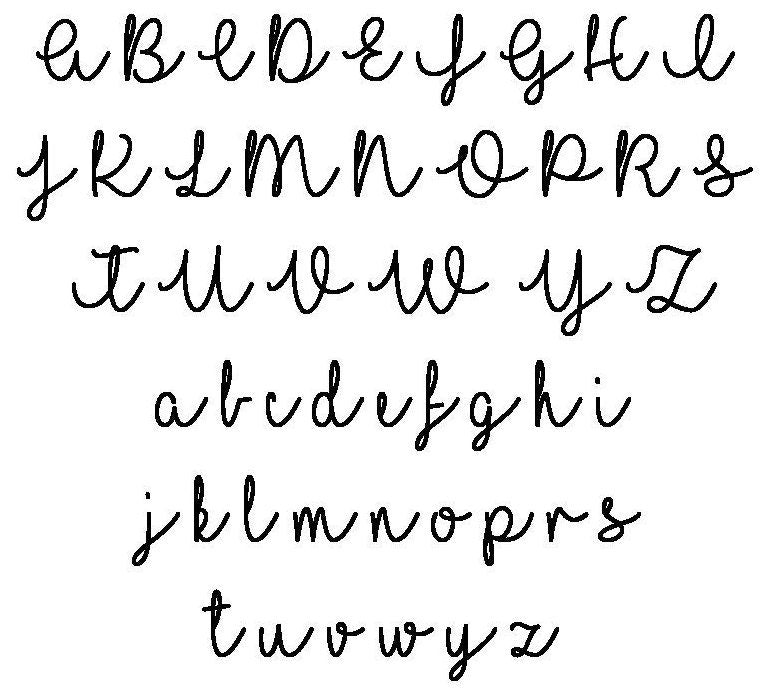 A B C D E F G H I
J K L M N O P R S
T U V W Y Z
a b c d e f g h i
j k l m n o p r s
t u v w y z